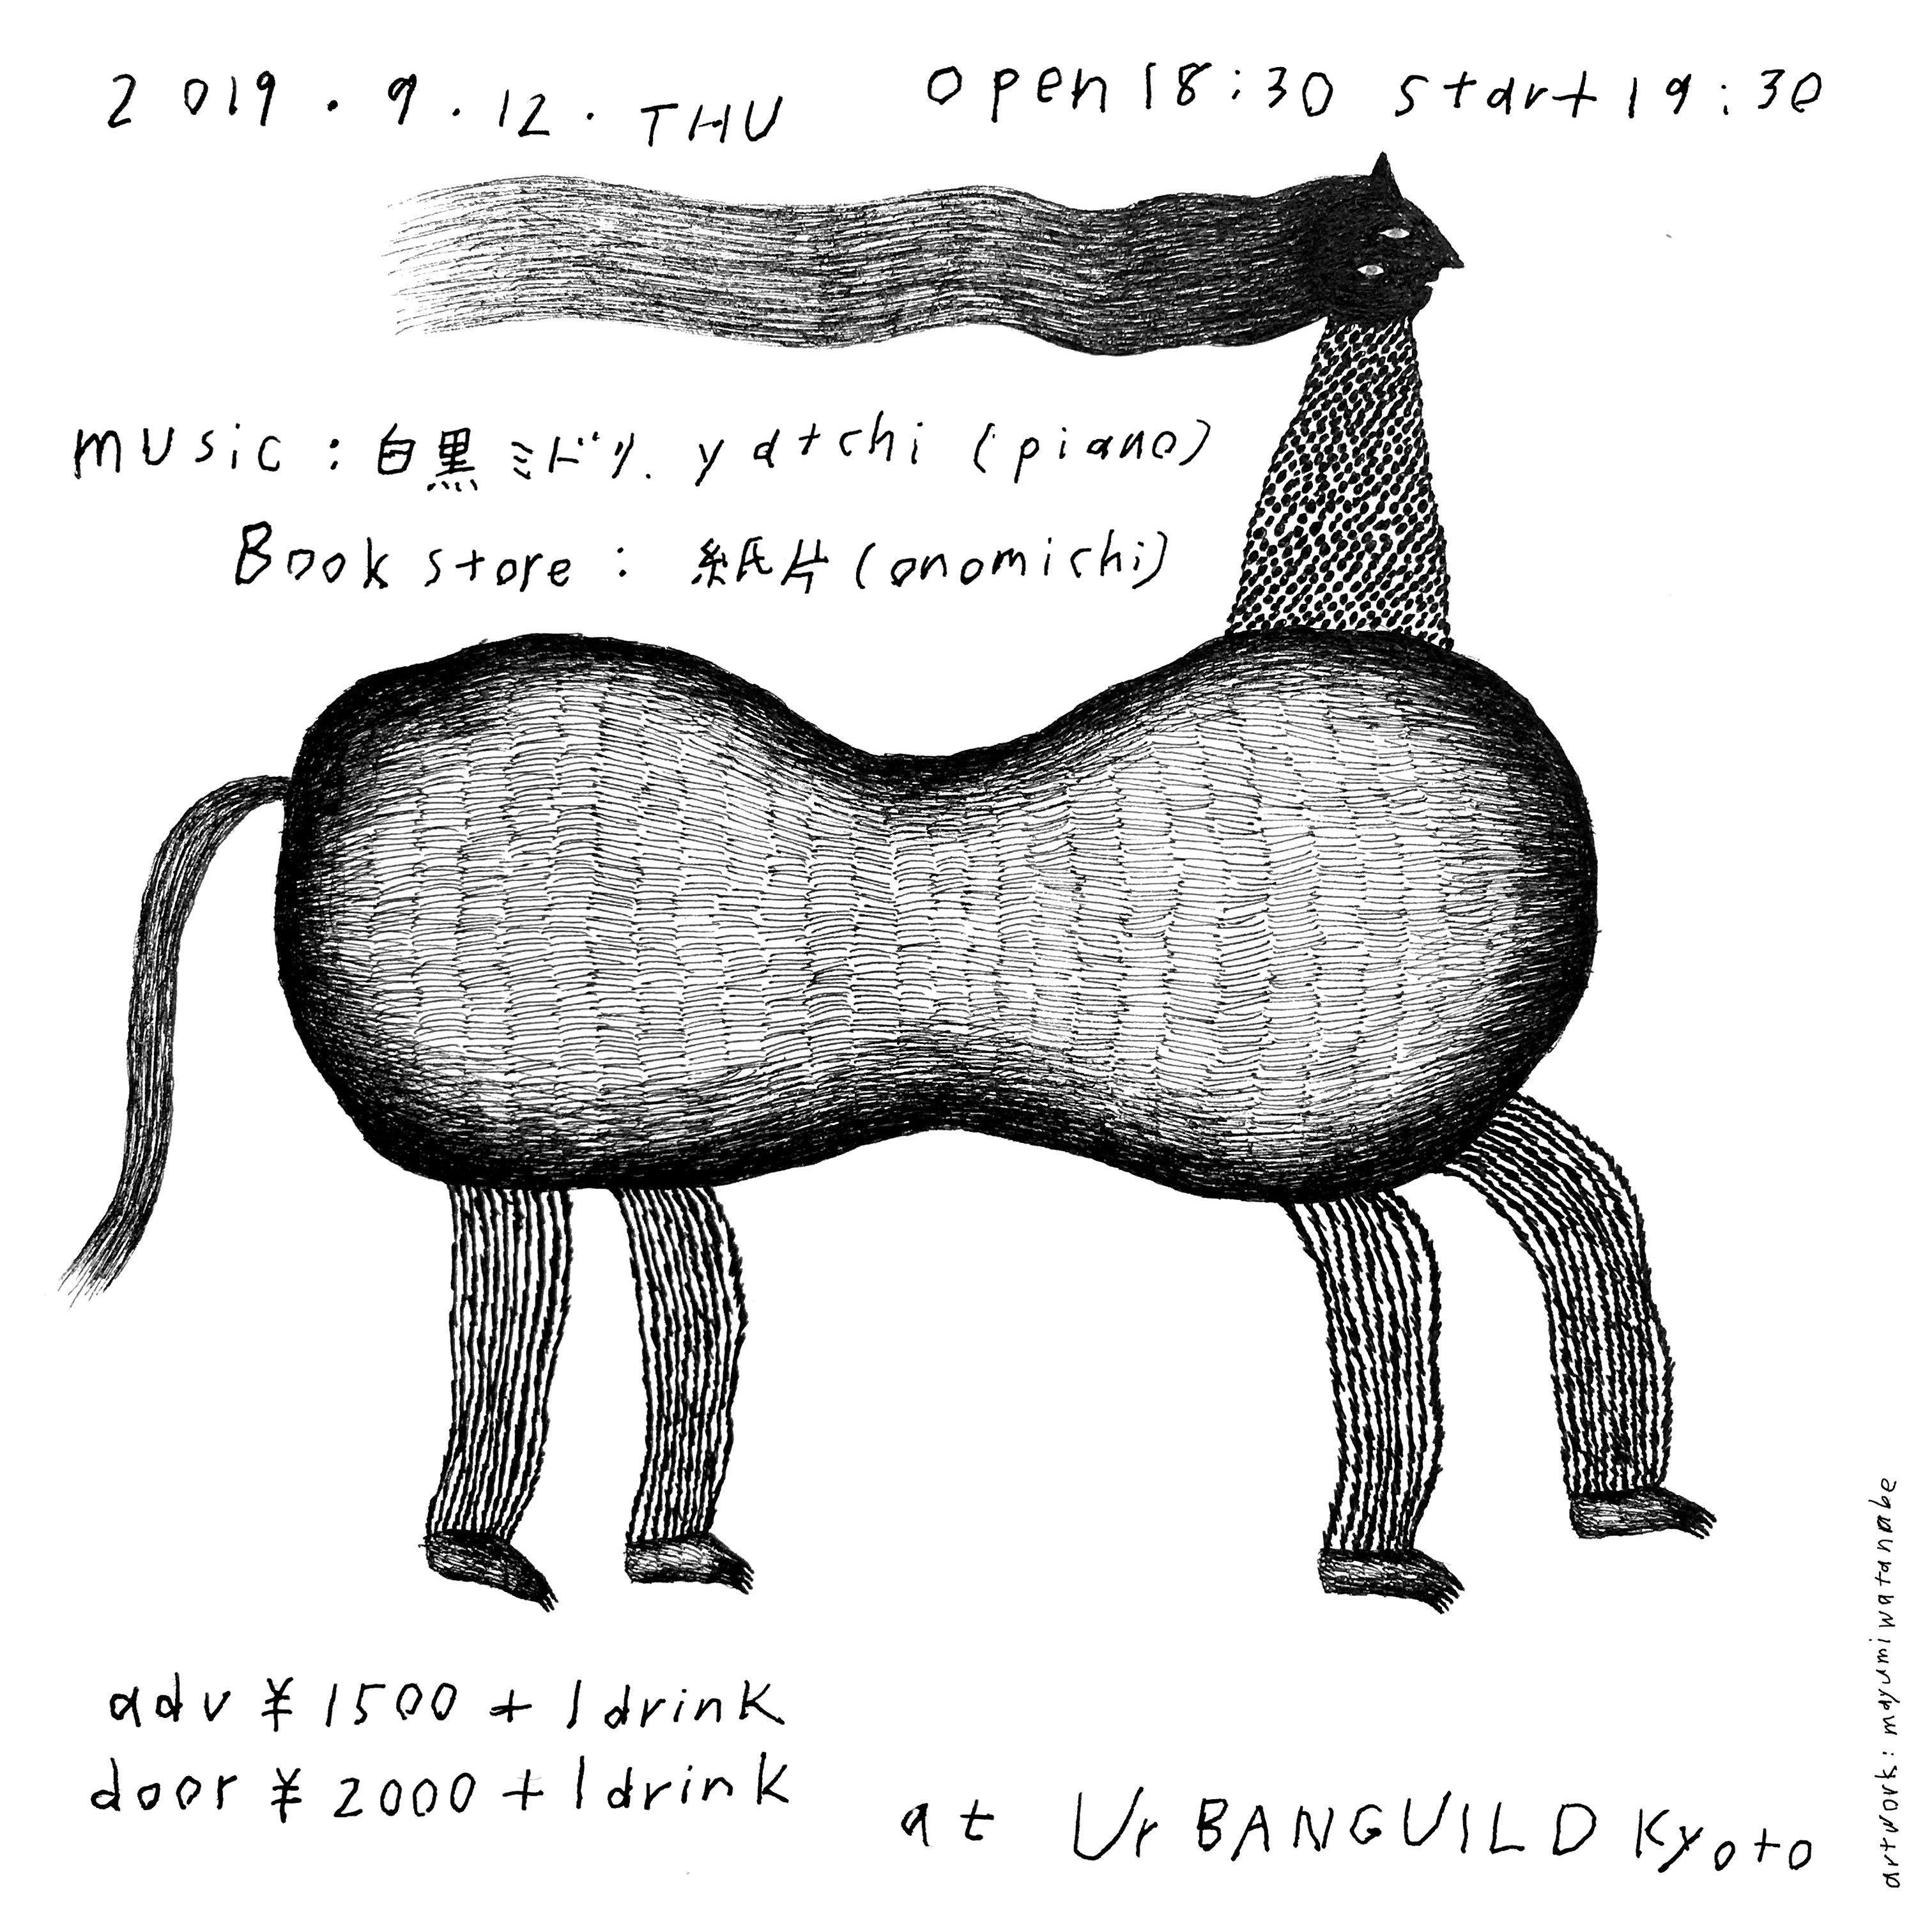 2019.9.12.THU
open 18:30 start 19:30
music : 白黒ミドリ. yatchi (piano)
Book store : 紙片 (onomichi)
adv ¥1500 + 1drink
door ¥2000 + 1drink
at UrBANGUILD Kyoto
artwork: mayumiwatanabe